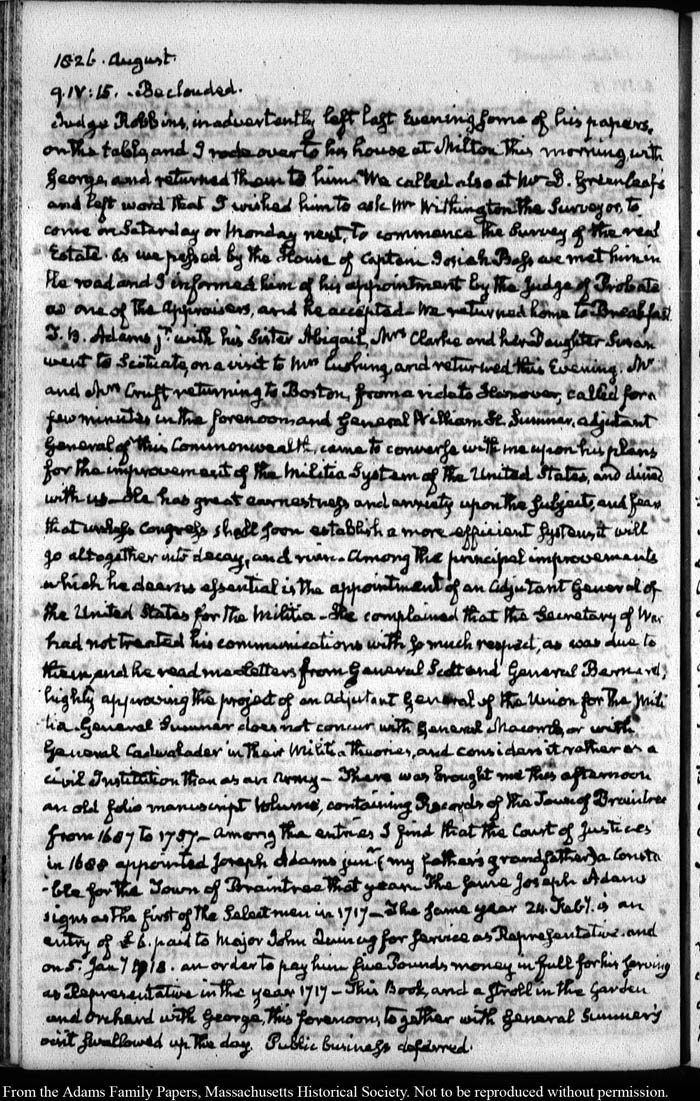 1826. August.
9. IV:15. Beclouded.
Judge Robbins, inadvertently left last Evening some of his papers,
on the table, and I rode over to his house at Milton this morning with
George, and returned them to him. We called also at Mr D. Greenleaf's
and left word that I wished him to ask Mr Withington the Surveyor, to
come on Saturday or Monday next, to commence the Survey of the real
Estate. As we passed by the House of Captain Josiah Bass we met him in
the road and I informed him of his appointment by the Judge of Probate
as one of the Appraisers, and he accepted— We returned home to Breakfast
T. B. Adams jr. with his Sister Abigail, Mrs Clarke and her Daughter Susan
went to Scituate, on a visit to Mrs Cushing, and returned this Evening. Mr
and Mrs Cruft returning to Boston, from a ride to Hanover, called for a
few minutes in the forenoon and General William H. Sumner, adjutant
General of this Commonwealth, came to converse with me upon his plans
for the improvement of the Militia System of the United States, and dined
with us— He has great earnestness and anxiety upon the Subject, and fears
that unless Congress shall soon establish a more efficient System, it will
go altogether into decay, and ruin— Among the principal improvements
which he deems essential is the appointment of an Adjutant General of
the United States for the Militia— He complained that the Secretary of War
had not treated his communications with so much respect, as was due to
them, and he read me letters from General Scott and General Bernard,
highly approving the project of an Adjutant General of the Union for the Mili
tia. General Sumner does not concur with General Macomb, or with
General Cadwalader in their Militia theories, and considers it rather as a
civil Institution than as an Army— There was brought me this afternoon
an old folio manuscript Volume, containing Records of the Town of Braintree
from 1687 to 1757— Among the entries I find that the Court of Justices
in 1688 appointed Joseph Adams junr. (my father's grandfather) a Consta
-ble for the Town of Braintree that year. The same Joseph Adams
signs as the first of the Select men in 1717— The same year 24. Feby. is an
entry of £6. paid to Major John Quincy for service as Representative. and
on 5. Jany 1718. an order to pay him five Pounds money in full for his serving
as Representative in the year 1717— This Book, and a stroll in the Garden
and Orchard with George, this forenoon, together with General Sumner's
visit swallowed up the day. Public business deferred.
From the Adams Family Papers, Massachusetts Historical Society. Not to be reproduced without permission.